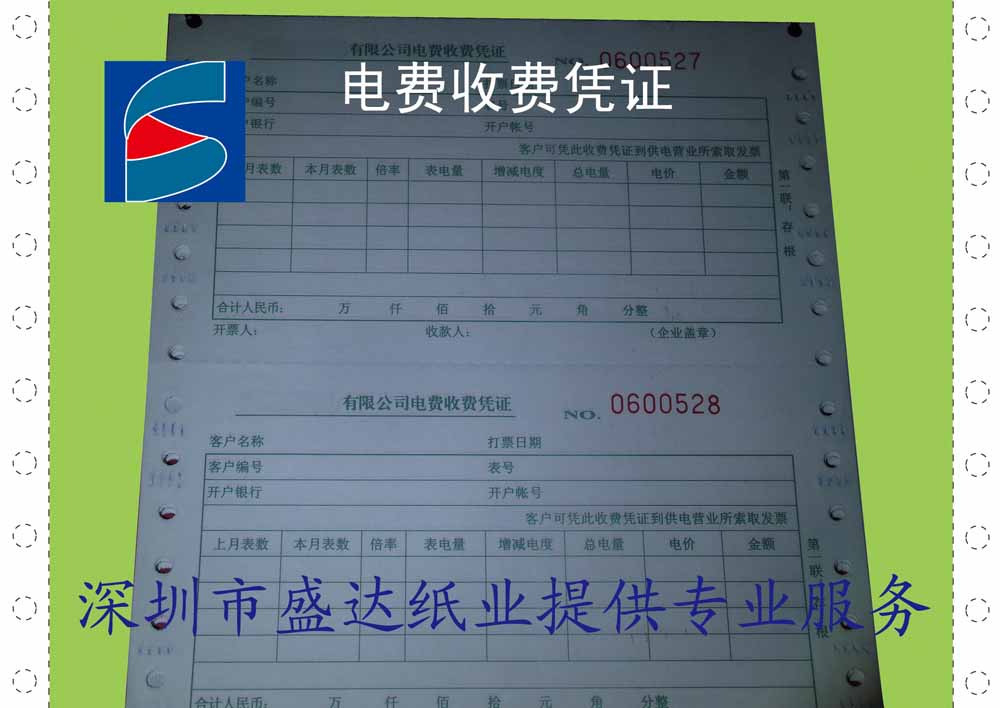 有限公司电费收费凭证 NO. 0600527
电费收费凭证
户名称
户编号 号
户银行 开户帐号
客户可凭此收费凭证到供电营业所索取发票
月表数 本月表数 倍率 表电量 增减电度 总电量 电价 金额
第一联:存根
合计人民币: 万 仟 佰 拾 元 角 分整
开票人: 收款人: (企业盖章)
有限公司电费收费凭证 NO. 0600528
客户名称 打票日期
客户编号 表号
开户银行 开户帐号
客户可凭此收费凭证到供电营业所索取发票
上月表数 本月表数 倍率 表电量 增减电度 总电量 电价 金额
第一联 根
深圳市盛达纸业提供专业服务
合计人民币: 万 仟 佰 拾 元 角 分整